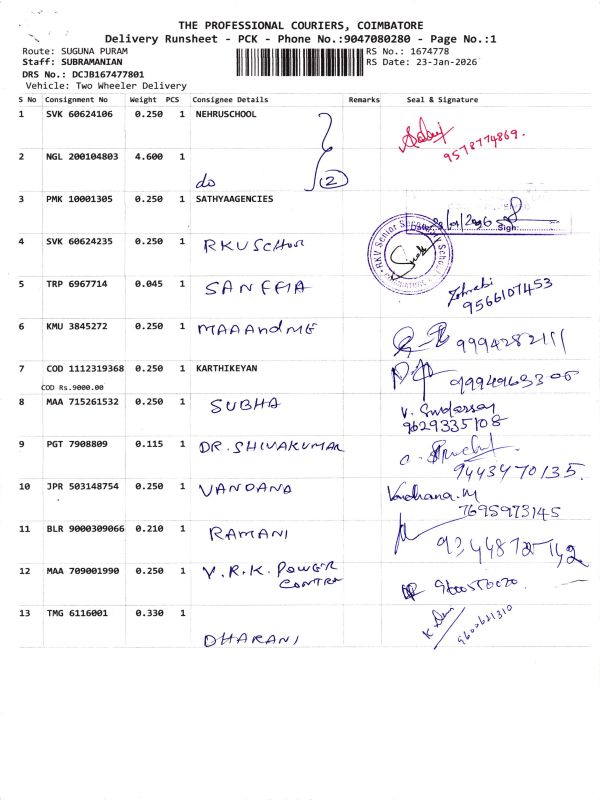 THE PROFESSIONAL COURIERS, COIMBATORE
Delivery Runsheet - PCK - Phone No.:9047080280 - Page No.:1
Route: SUGUNA PURAM RS No.: 1674778
Staff: SUBRAMANIAN RS Date: 23-Jan-2026
DRS No.: DCJB167477801
Vehicle: Two Wheeler Delivery
S No Consignment No Weight PCS Consignee Details Remarks Seal & Signature
1 SVK 60624106 0.250 1 NEHRUSCHOOL
9578774869.
2 NGL 200104803 4.600 1
do 2
3 PMK 10001305 0.250 1 SATHYAAGENCIES
Sign:
4 SVK 60624235 0.250 1 RKV SCHOOL
RKV Senior Secondary School
5 TRP 6967714 0.045 1 SANFFIA
9566107453
6 KMU 3845272 0.250 1 MAAAndME
7 COD 1112319368 0.250 1 KARTHIKEYAN
COD Rs.9000.00
8 MAA 715261532 0.250 1 SUBHA
9629335108
9 PGT 7908809 0.115 1 DR. SHIVAKUMAR
9443470135.
10 JPR 503148754 0.250 1 VANDANA
Vandhana.M
7695973145
11 BLR 9000309066 0.210 1 RAMANI
12 MAA 709001990 0.250 1 V.R.K. POWER
CONTRA
13 TMG 6116001 0.330 1
DHARANI
9600621310